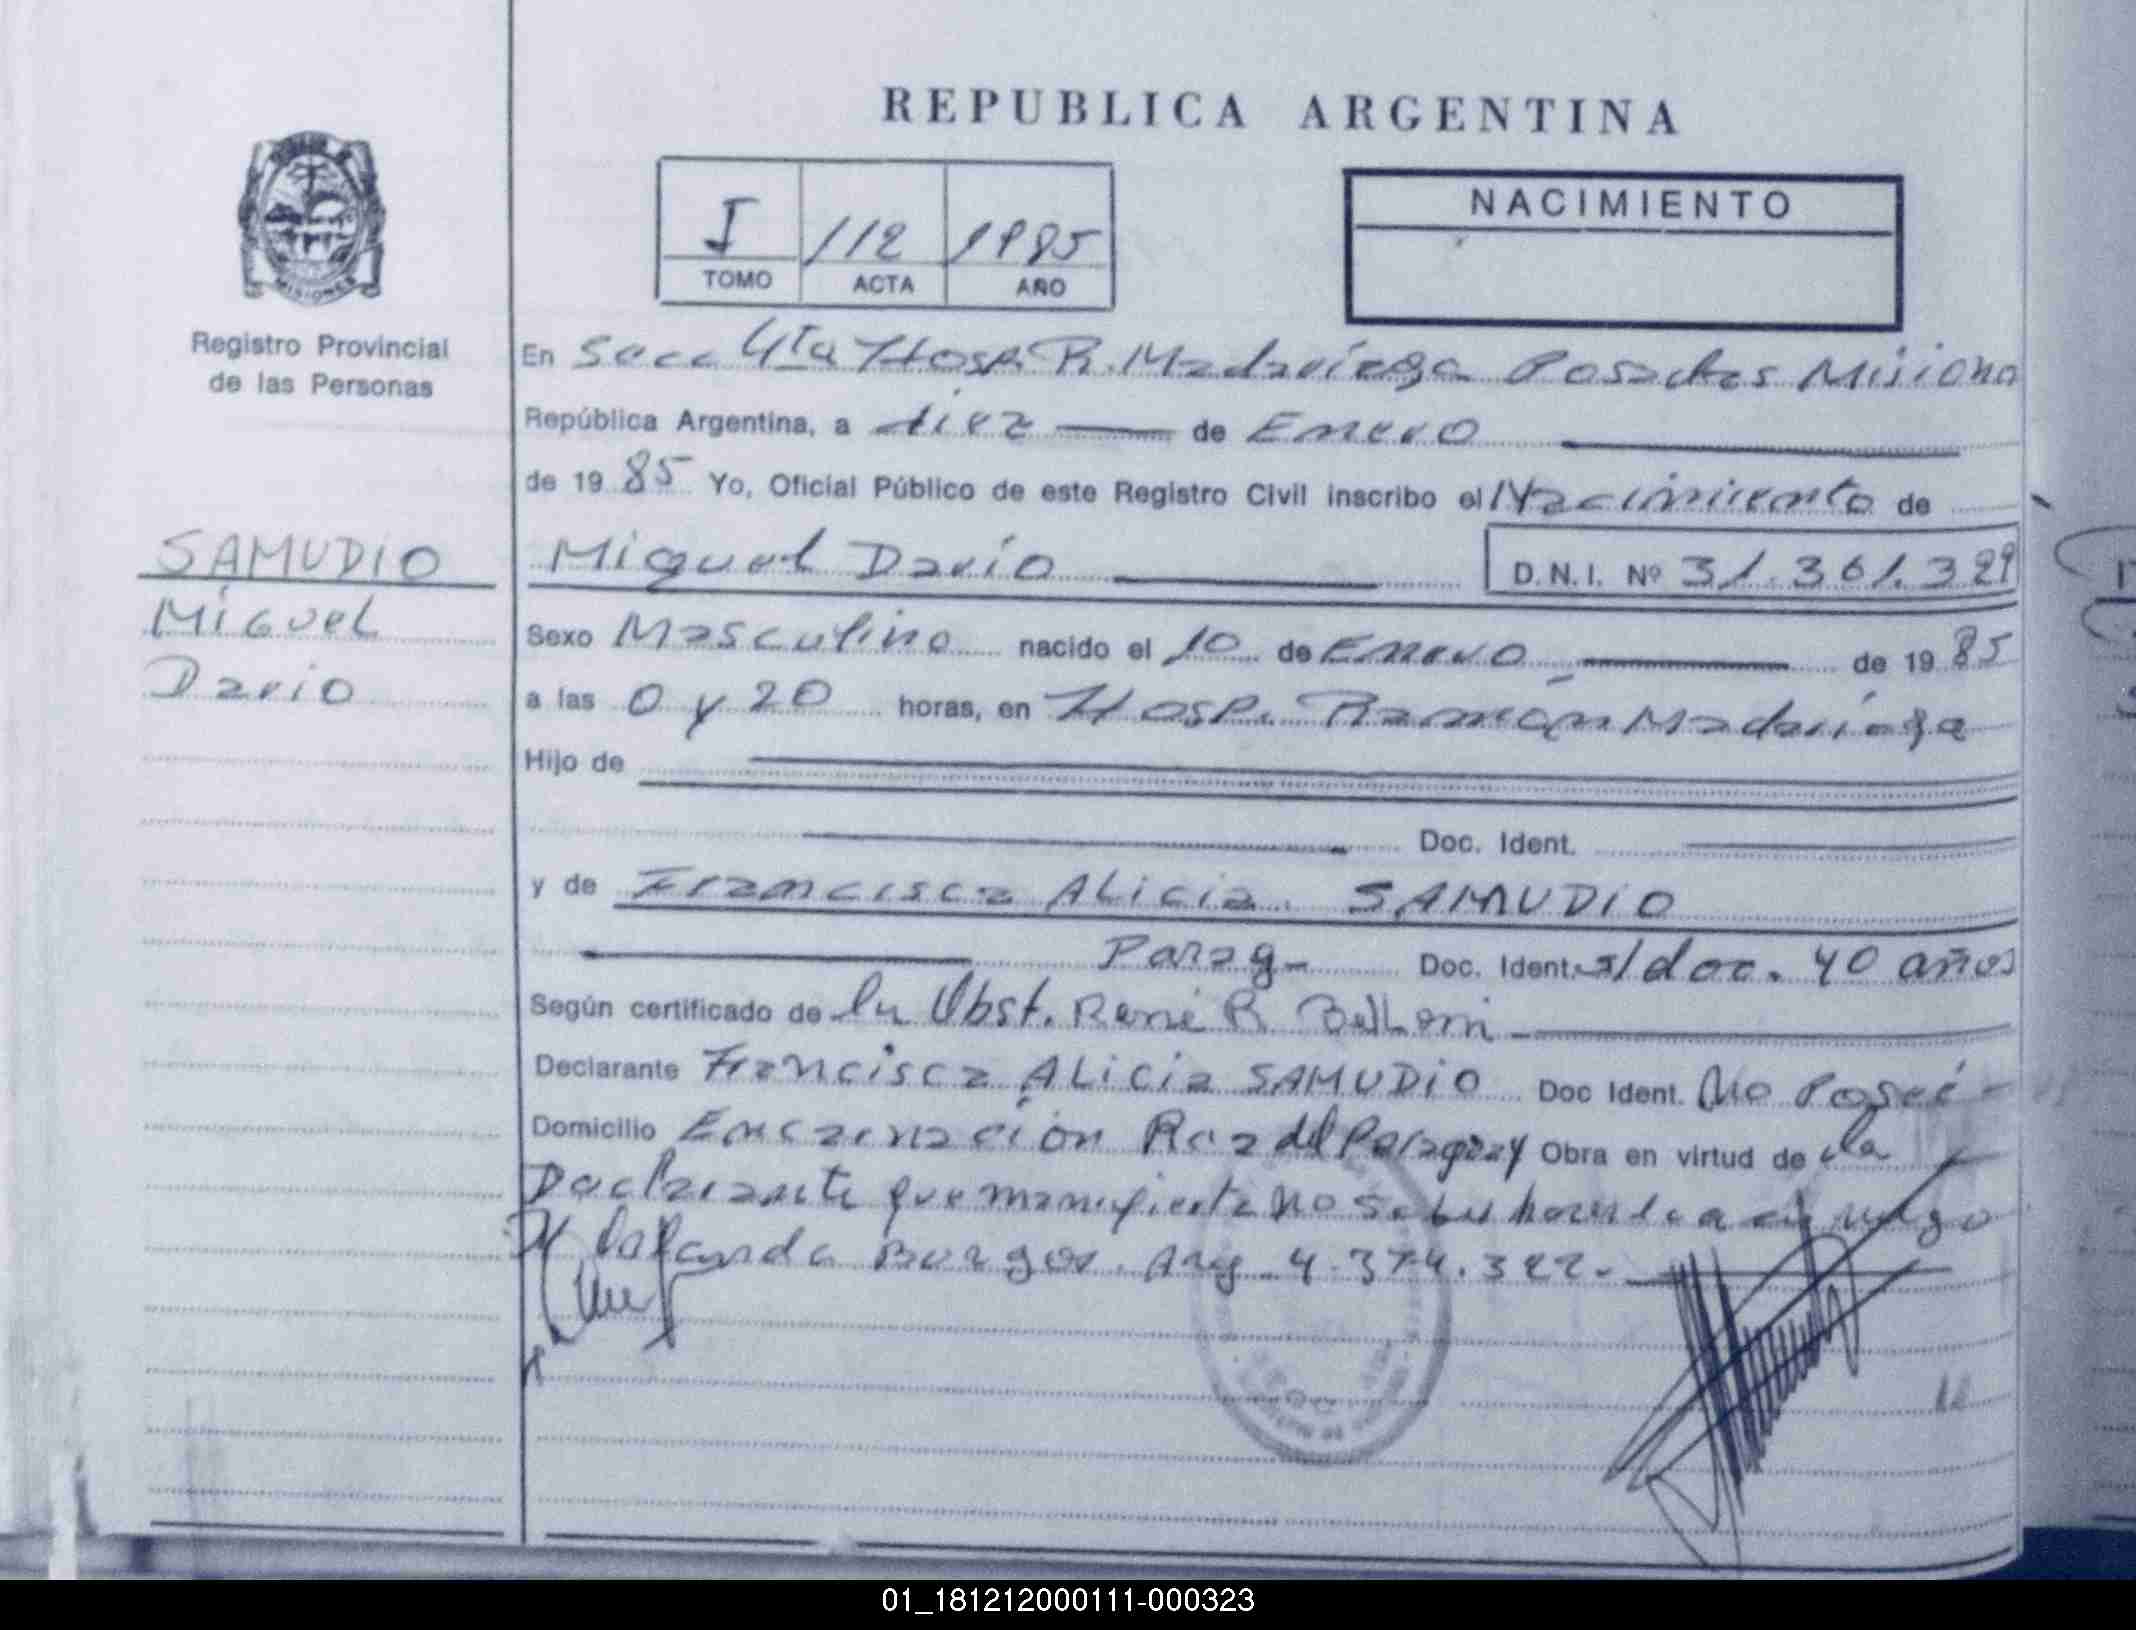 REPUBLICA ARGENTINA
MISIONES
Registro Provincial
de las Personas
I 112 1985
TOMO ACTA AÑO
NACIMIENTO
En Secc 4ta Hosp. R. Madariaga Posadas Misiona
República Argentina, a diez de Enero
de 19 85 Yo, Oficial Público de este Registro Civil inscribo el Nacimiento de
SAMUDIO
Miguel
Dario
Miguel Darío D.N.I. Nº 31.361.329
Sexo Masculino nacido el 10 de Enero de 19 85
a las 0 y 20 horas, en Hosp. Ramón Madariaga
Hijo de
Doc. Ident.
y de Francisca Alicia SAMUDIO
Parag- Doc. Ident. s/doc. 40 años
Según certificado de la Obst. René R Belloni
Declarante Francisca Alicia SAMUDIO Doc Ident. No Posee
Domicilio Encarnación Rca del Paraguay Obra en virtud de la
Declarante que manifiesta no saber hacerlo a ruego
Burgos. Arg 4.374.322.-
01_181212000111-000323